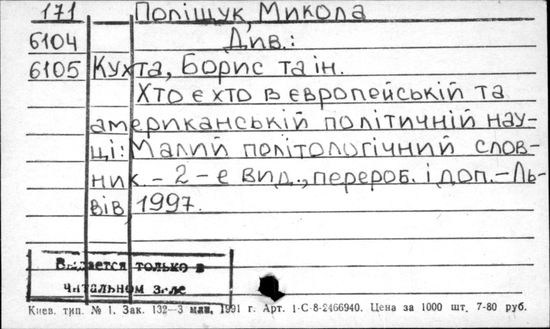 171 Поліщук, Микола
6104 Див.:
6105 Кухта, Борис та ін.
Хто є хто в європейській та
американській політичній нау-
ці: Малий політологічний слов-
ник. – 2-е вид., перероб. і доп. – Ль-
вів, 1997.
Выдается только в
читальном зале
Киев. тип. № 1. Зак. 132—3 млн, 1991 г. Арт. 1-С-8-2466940. Цена за 1000 шт. 7-80 руб.